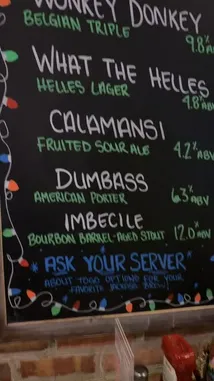 WONKEY DONKEY
BELGIAN TRIPLE 9.8% AB
WHAT THE HELLES
HELLES LAGER 4.8% ABV
CALAMANSI
FRUITED SOUR ALE 4.2% ABV
DUMBASS
AMERICAN PORTER 6.3% ABV
IMBECILE
BOURBON BARREL-AGED STOUT 12.0% ABV
* ASK YOUR SERVER *
ABOUT TOGO OPTIONS FOR YOUR
FAVORITE JACKASS BREW!